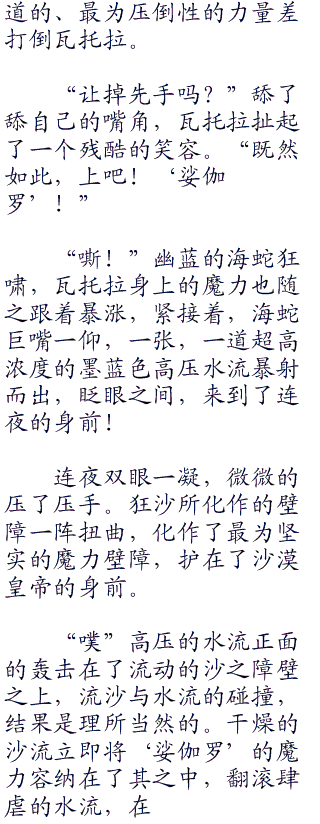 道的、最为压倒性的力量差
打倒瓦托拉。
“让掉先手吗？”舔了
舔自己的嘴角，瓦托拉扯起
了一个残酷的笑容。“既然
如此，上吧！‘娑伽
罗’！”
“嘶！”幽蓝的海蛇狂
啸，瓦托拉身上的魔力也随
之跟着暴涨，紧接着，海蛇
巨嘴一仰，一张，一道超高
浓度的墨蓝色高压水流暴射
而出，眨眼之间，来到了连
夜的身前！
连夜双眼一凝，微微的
压了压手。狂沙所化作的壁
障一阵扭曲，化作了最为坚
实的魔力壁障，护在了沙漠
皇帝的身前。
“噗”高压的水流正面
的轰击在了流动的沙之障壁
之上，流沙与水流的碰撞，
结果是理所当然的。干燥的
沙流立即将‘娑伽罗’的魔
力容纳在了其之中，翻滚肆
虐的水流，在